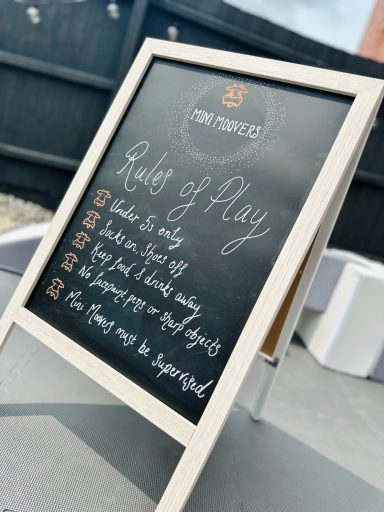 MINI MOOVERS
Rules of Play
Under 5s only
Socks on. Shoes off
Keep food & drinks away
No facepaint, pens or sharp objects
Mini Moovers must be Supervised